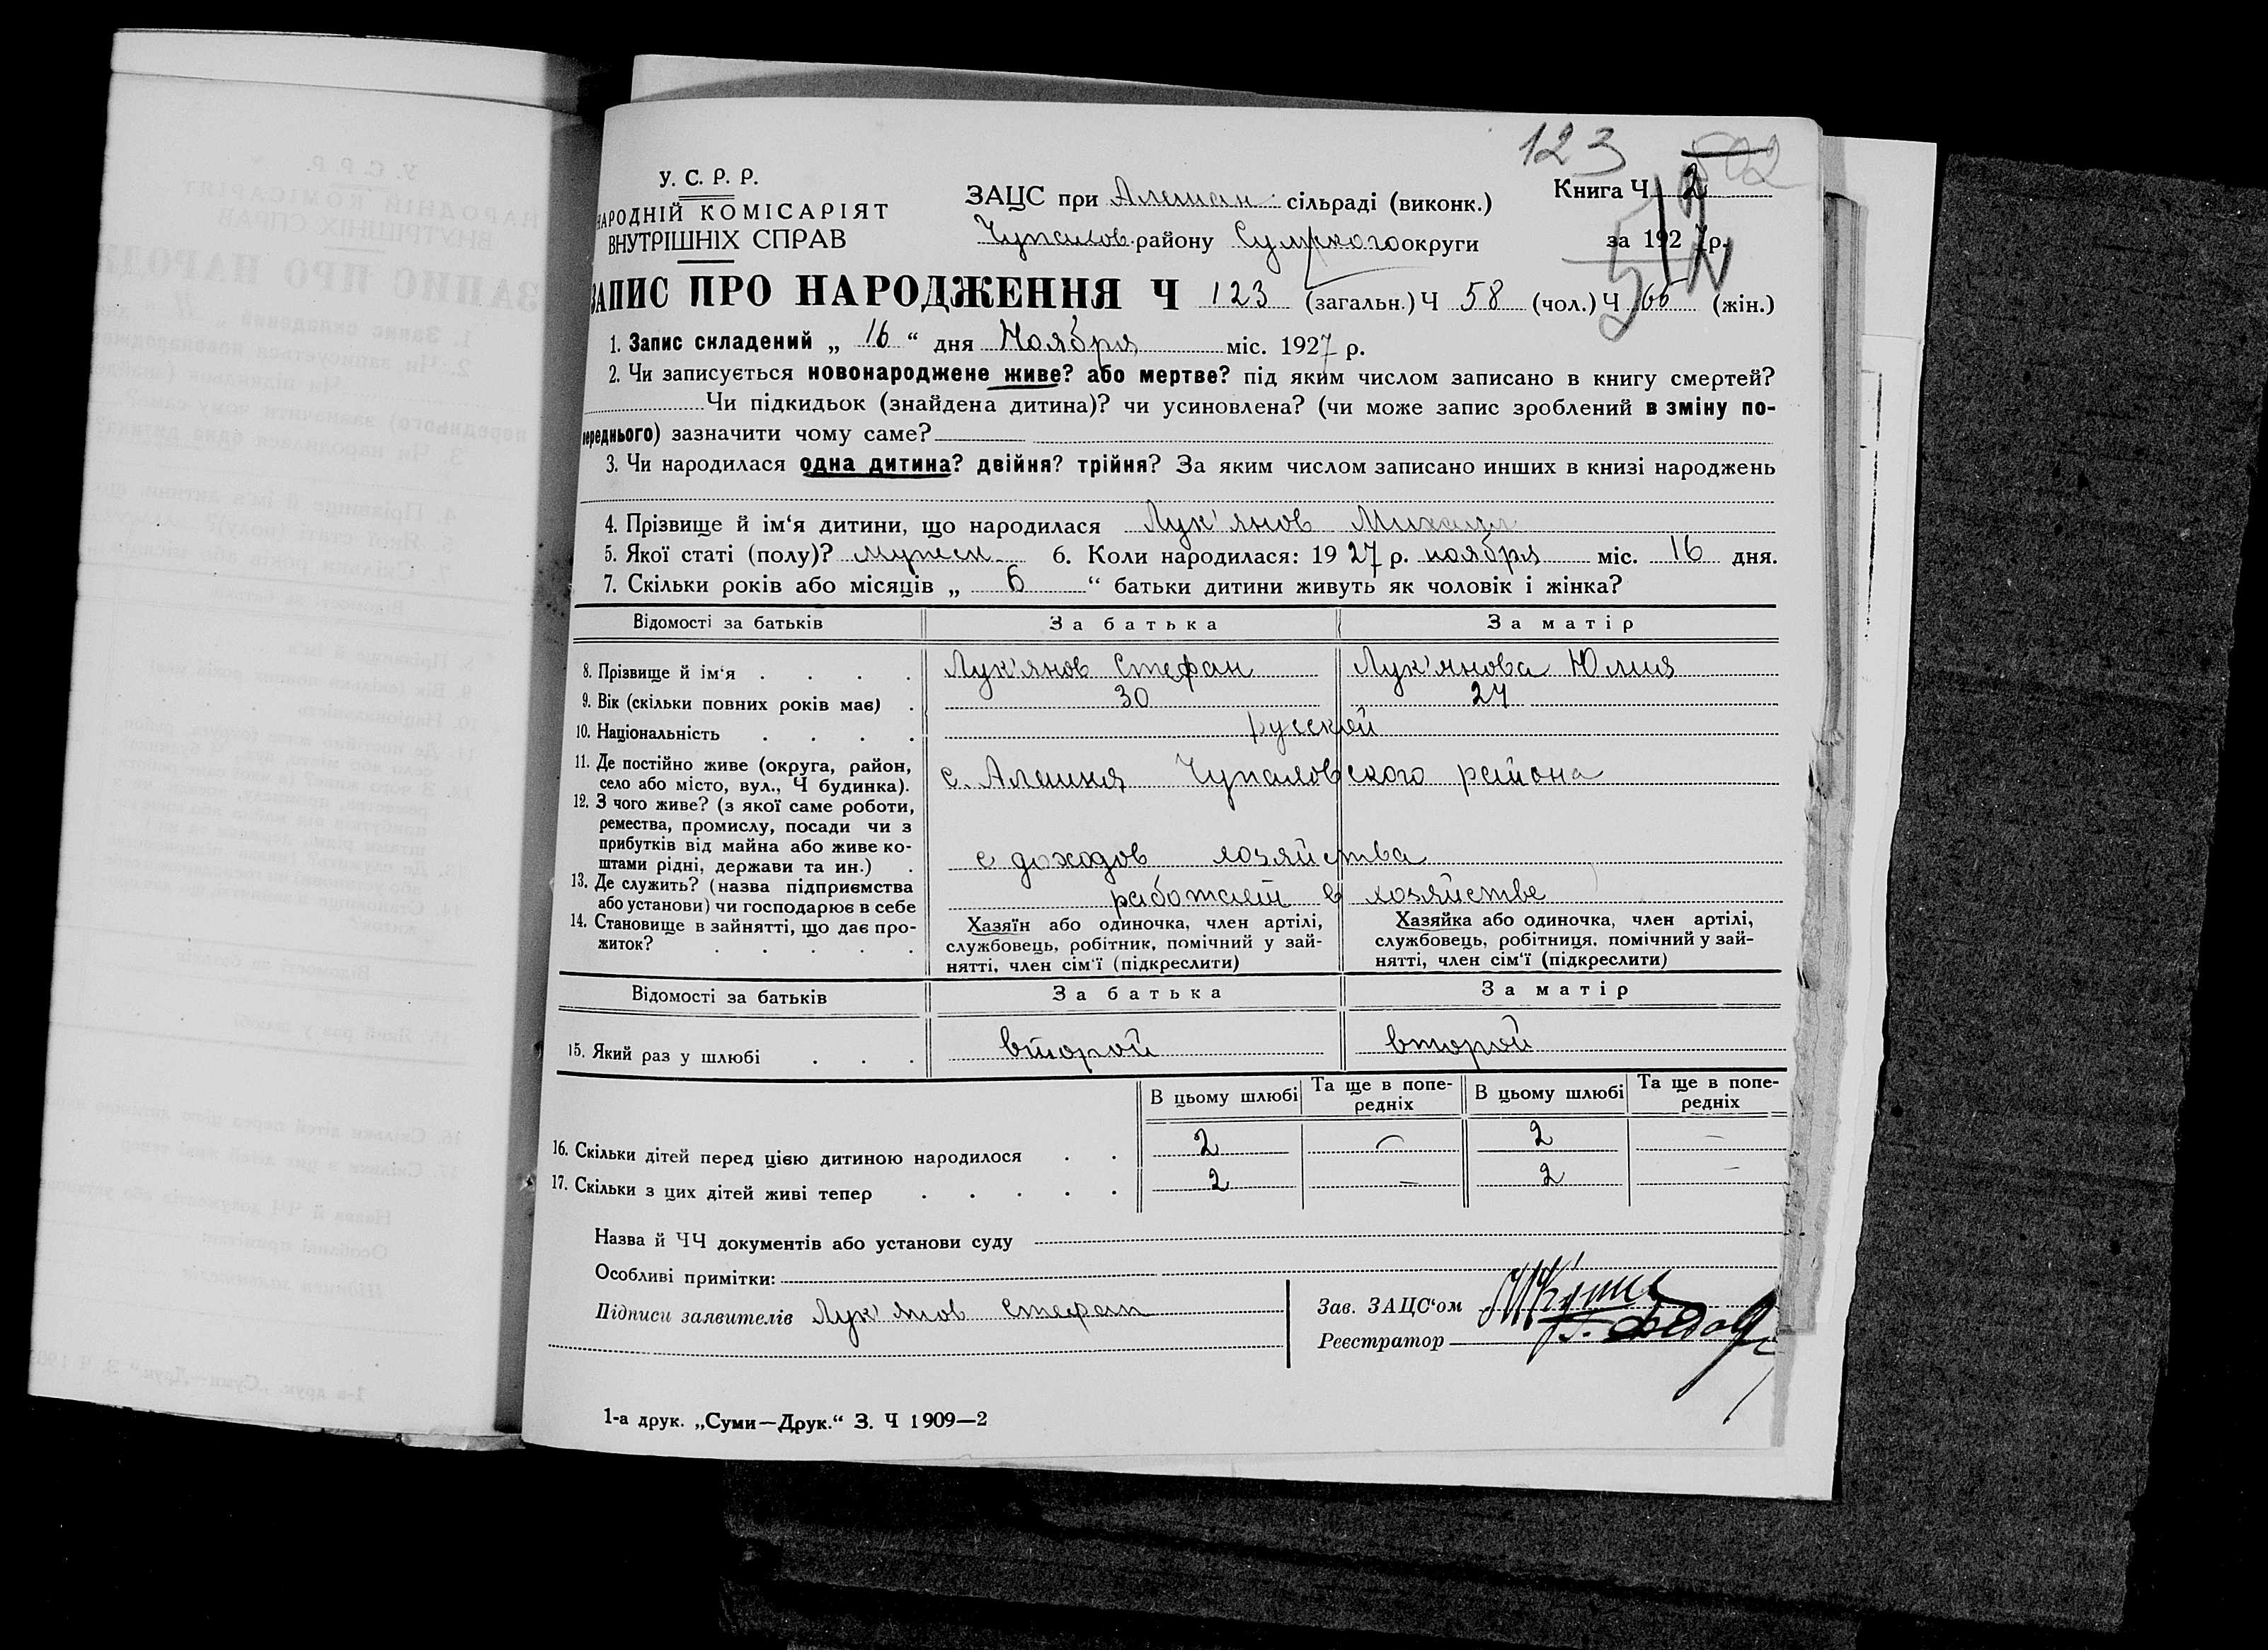 123
У. С. Р. Р.
НАРОДНІЙ КОМІСАРІЯТ
ВНУТРІШНІХ СПРАВ
ЗАЦС при Алешан. сільраді (виконк.)
Чупахов. району Сумского округи
Книга Ч. 2
за 1927 р.
ЗАПИС ПРО НАРОДЖЕННЯ Ч 123 (загальн.) Ч 58 (чол.) Ч 65 (жін.)
1. Запис складений „ 16 “ дня Ноября міс. 1927 р.
2. Чи записується новонароджене живе? або мертве? під яким числом записано в книгу смертей?
Чи підкидьок (знайдена дитина)? чи усиновлена? (чи може запис зроблений в зміну по-
переднього) зазначити чому саме?
3. Чи народилася одна дитина? двійня? трійня? За яким числом записано инших в книзі народжень
4. Прізвище й ім‘я дитини, що народилася Лук'янов Михаил
5. Якої статі (полу)? мужеск. 6. Коли народилася: 1927 р. ноября міс. 16 дня.
7. Скільки років або місяців „ 6 “ батьки дитини живуть як чоловік і жінка?
Відомості за батьків За батька За матір
8. Прізвище й ім‘я . . . . Лук'янов Стефан Лук'янова Юлия
9. Вік (скільки повних років має) . 30 24
10. Національність . . . . русский
11. Де постійно живе (округа, район,
село або місто, вул., Ч будинка). с. Алешня Чупаховского района
12. З чого живе? (з якої саме роботи,
ремества, промислу, посади чи з
прибутків від майна або живе ко-
штами рідні, держави та ин.) . с доходов хозяйства
13. Де служить? (назва підприємства
або установи) чи господарює в себе работает в хозяйстве
14. Становище в зайнятті, що дає про-
житок? . . . .
Хазяїн або одиночка, член артілі,
службовець, робітник, помічний у зай-
нятті, член сім‘ї (підкреслити)
Хазяйка або одиночка, член артілі,
службовець, робітниця, помічний у зай-
нятті, член сім‘ї (підкреслити)
Відомості за батьків За батька За матір
15. Який раз у шлюбі . . . второй второй
В цьому шлюбі Та ще в попе-редніх В цьому шлюбі Та ще в попе-редніх
16. Скільки дітей перед цією дитиною народилося . . 2 — 2 —
17. Скільки з цих дітей живі тепер . . . . . 2 — 2 —
Назва й ЧЧ документів або установи суду
Особливі примітки:
Підписи заявителів Лук'янов Стефан
Зав. ЗАЦС‘ом
Реєстратор
1-а друк. „Суми—Друк.“ З. Ч 1909—2